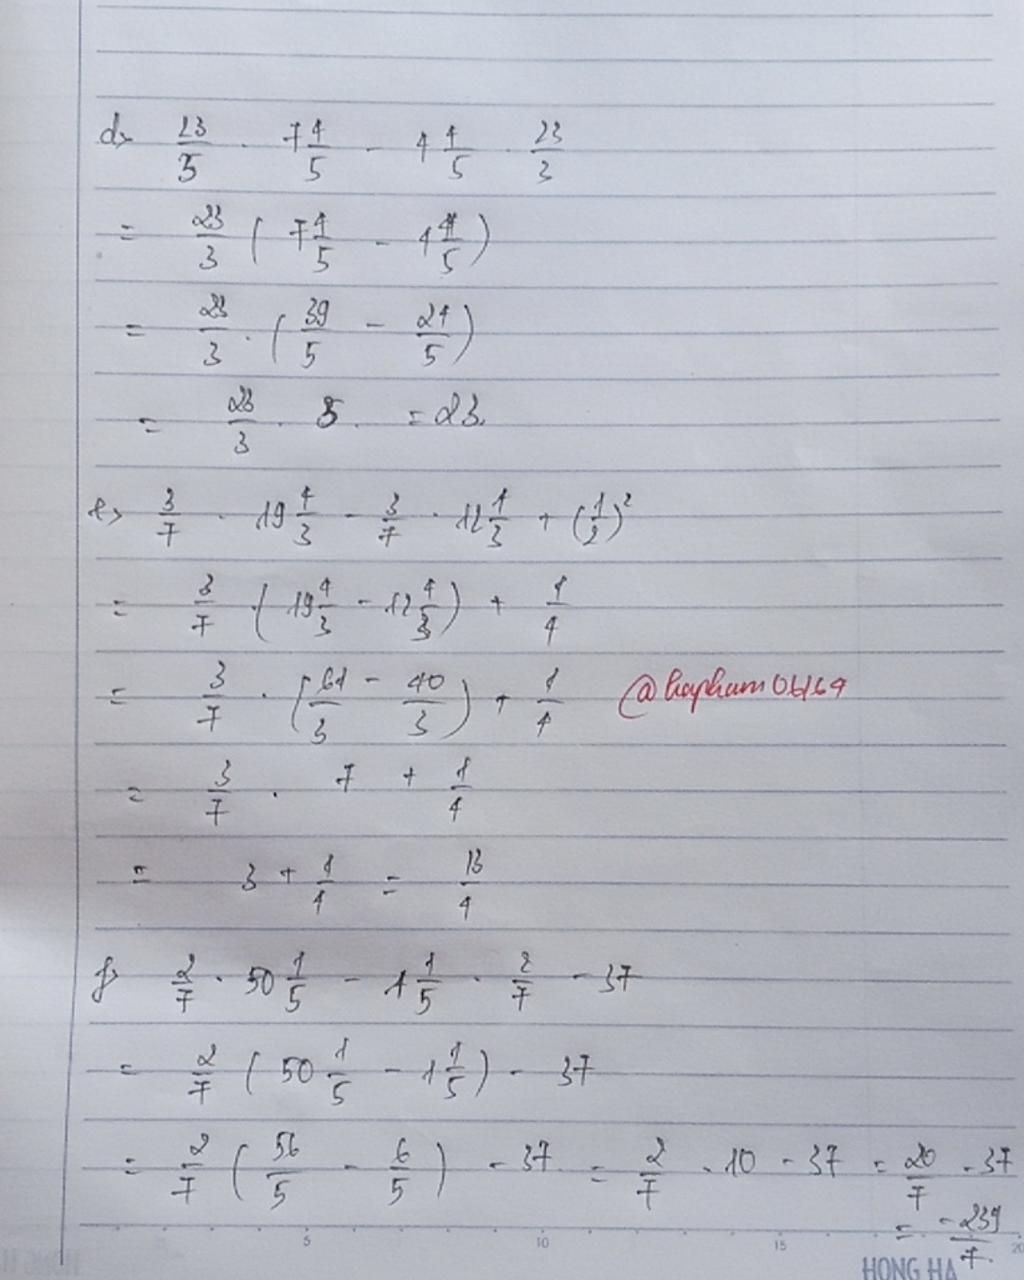 d> 23/5 . 7 4/5 - 4 4/5 . 23/3
= 23/3 ( 7 4/5 - 4 4/5 )
= 23/3 . ( 39/5 - 24/5 )
= 23/3 . 3 . = 23.
e> 3/7 . 19 1/3 - 3/7 . 12 1/3 + (1/2)²
= 3/7 . ( 19 1/3 - 12 1/3 ) + 1/4
= 3/7 . ( 61/3 - 40/3 ) + 1/4 @hapham06164
= 3/7 . 7 + 1/4
= 3 + 1/4 = 13/4
f> 2/7 . 50 1/5 - 1 1/5 . 2/7 - 37
= 2/7 ( 50 1/5 - 1 1/5 ) - 37
= 2/7 ( 56/5 - 6/5 ) - 37 = 2/7 . 10 - 37 = 20/7 - 37
= -239/7.
5 10 15 20
HONG HA